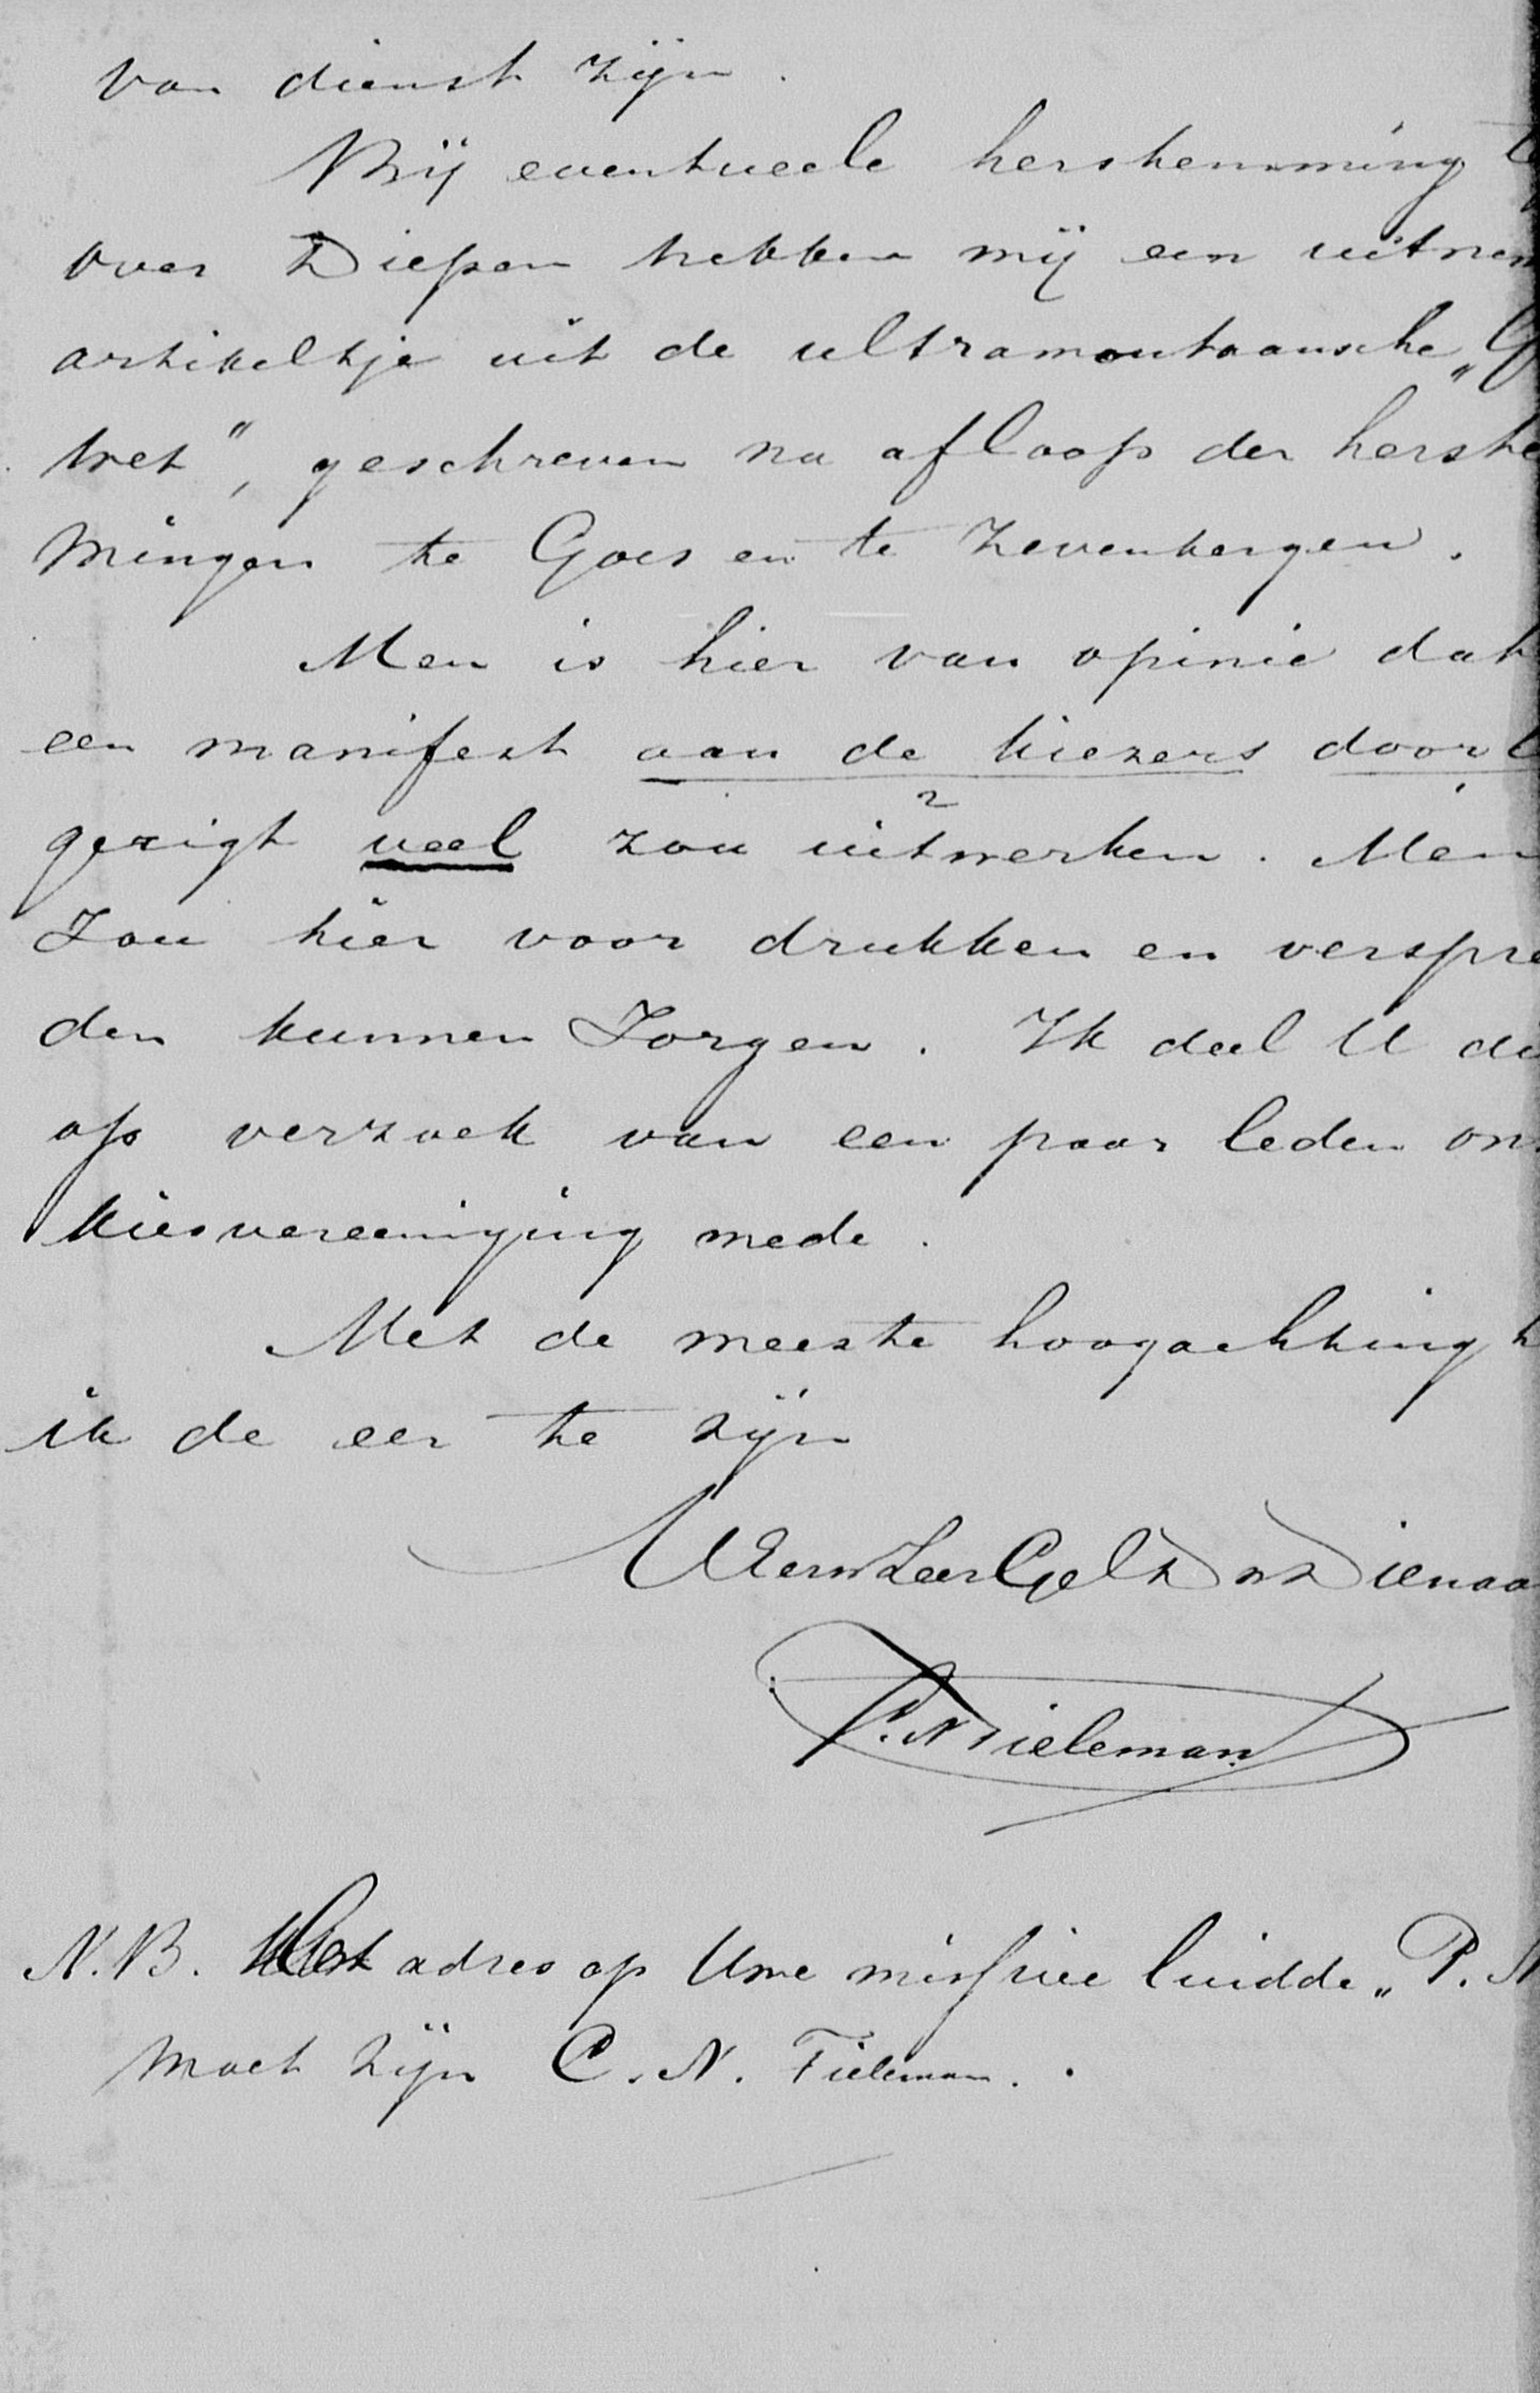 van dienst zijn.
Bij eventueele herstemming t
over Diepen hebben wij een uitnem
artikeltje uit de ultramontaansche „G
wet", geschreven na afloop der herste
mingen te Goes en te Zevenbergen.
Men is hier van opinie dat
een manifest aan de kiezers door U
gerigt veel zou uitwerken. Men
Zou hier voor drukken en verspre
den kunnen Zorgen. Ik deel U di
op verzoek van een paar leden onz
kiesvereeniging mede.
Met de meeste hoogachting h
ik de eer te zijn
UEerw Zeer Gel Dw Dienaa
C. N Tieleman
N.B. Het adres op Uwe missive luidde „P. N
moet zijn C. N. Tieleman.